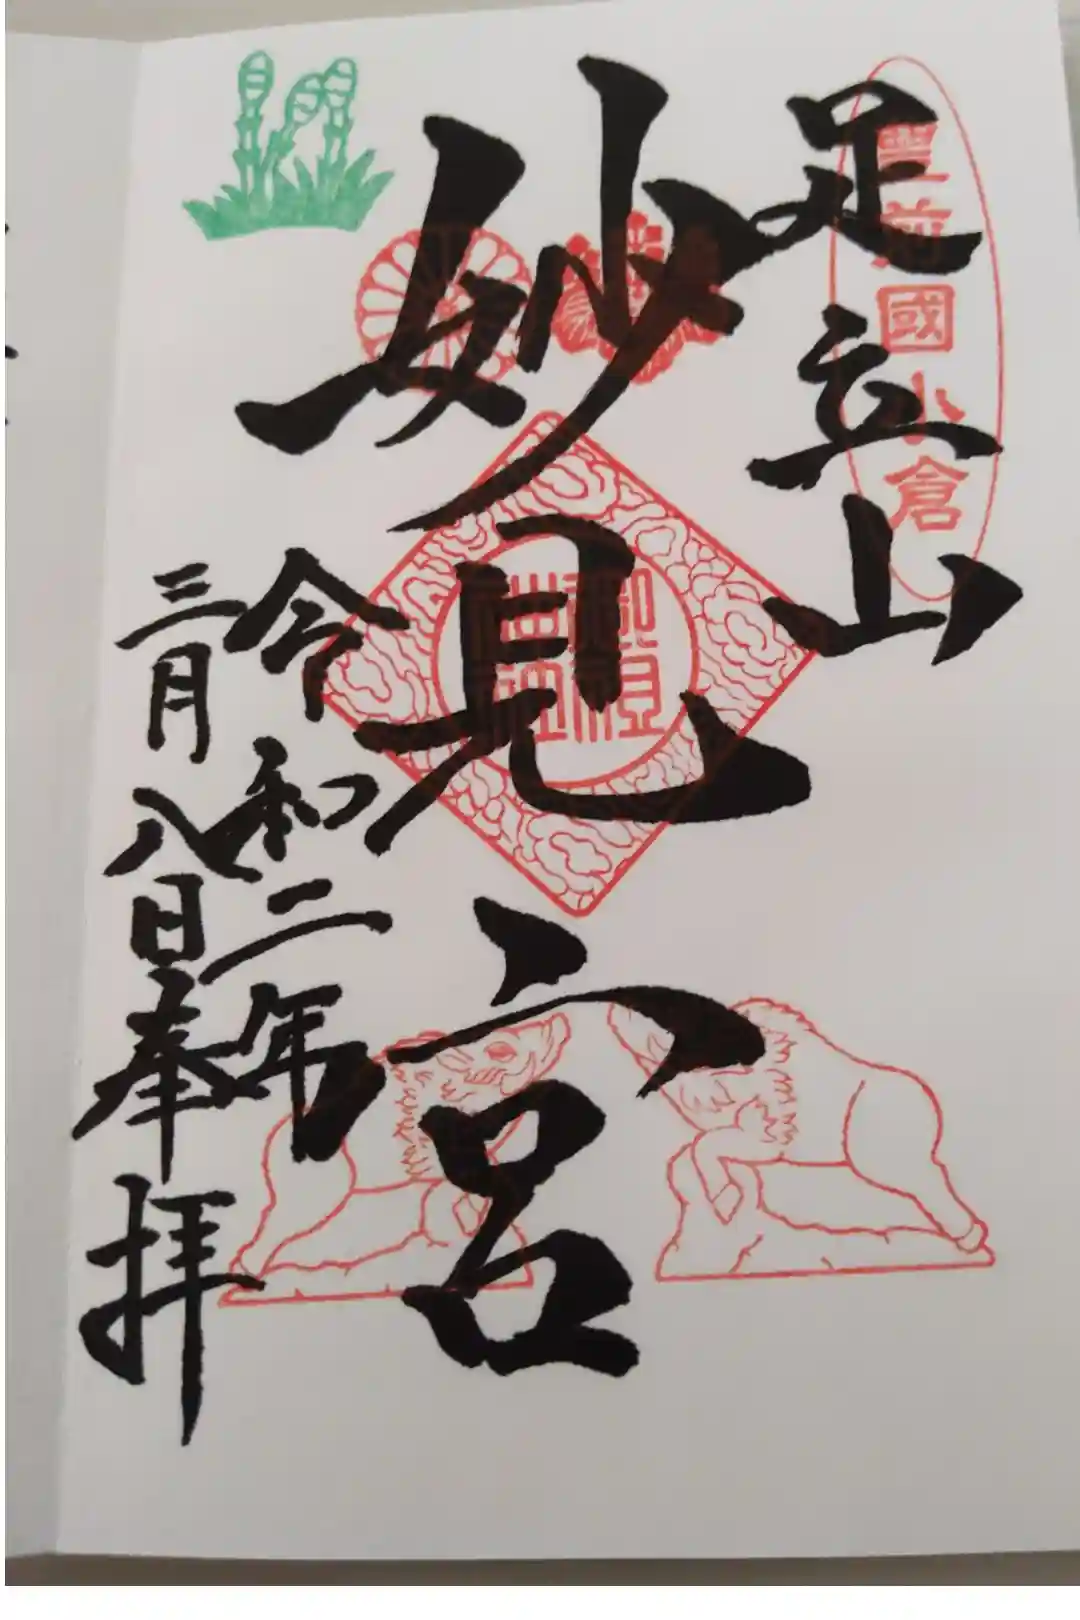 足立山
豊前國小倉
妙見宮
令和二年
三月八日奉拝